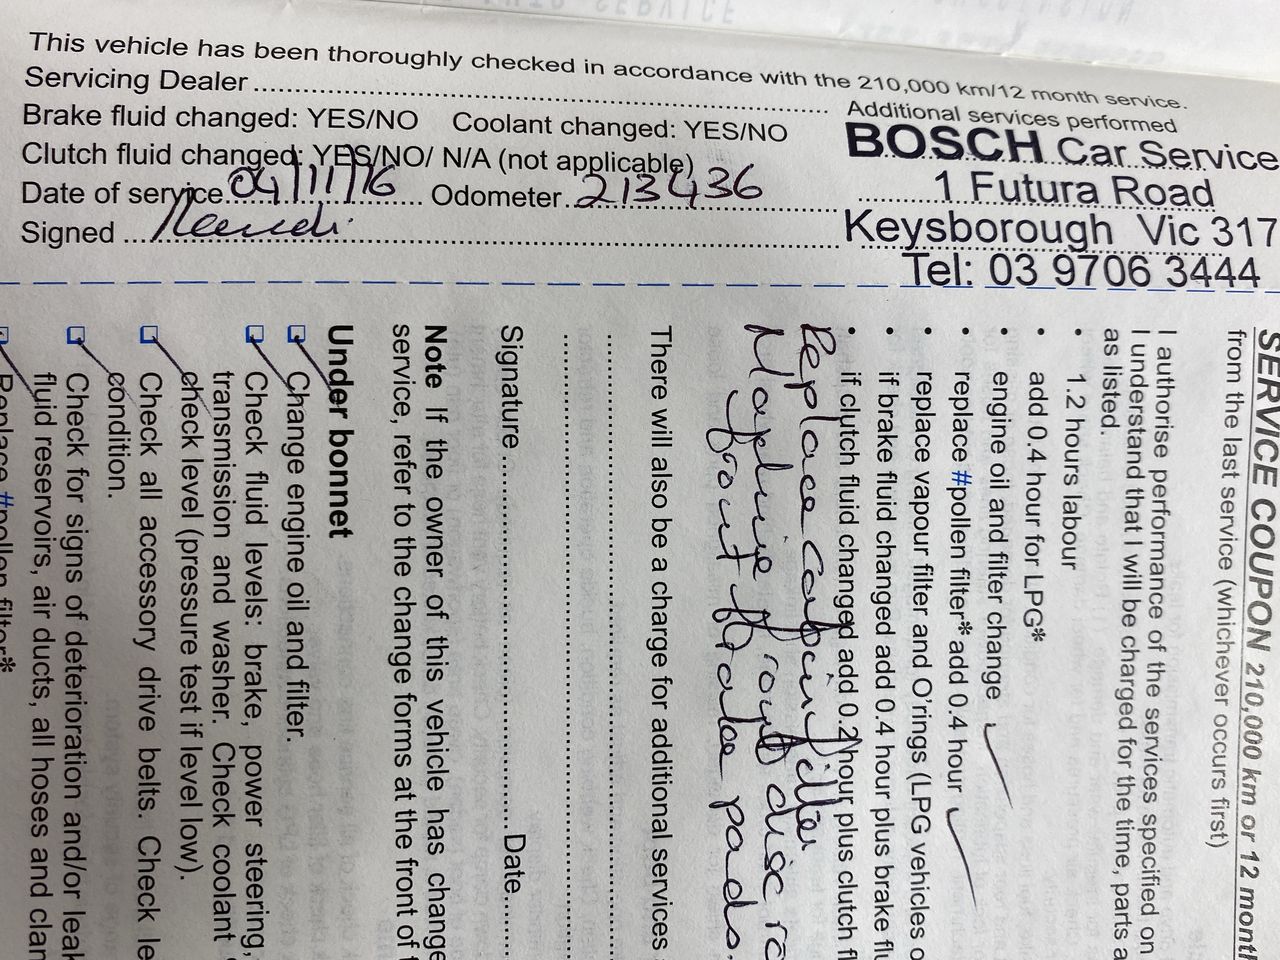 This vehicle has been thoroughly checked in accordance with the 210,000 km/12 month service.
Servicing Dealer
Brake fluid changed: YES/NO Coolant changed: YES/NO
Clutch fluid changed: YES/NO/ N/A (not applicable)
Date of service 04/11/16 Odometer 213436
Signed
Additional services performed
BOSCH Car Service
1 Futura Road
Keysborough Vic 317
Tel: 03 9706 3444
SERVICE COUPON 210,000 km or 12 month
from the last service (whichever occurs first)
I authorise performance of the services specified on
I understand that I will be charged for the time, parts a
as listed.
• 1.2 hours labour
• add 0.4 hour for LPG*
• engine oil and filter change
• replace #pollen filter* add 0.4 hour
• replace vapour filter and O'rings (LPG vehicles o
• if brake fluid changed add 0.4 hour plus brake flu
• if clutch fluid changed add 0.2 hour plus clutch fl
Replace cabin filter
Machine front disc ro
front brake pads.
There will also be a charge for additional services
Signature Date
Note If the owner of this vehicle has change
service, refer to the change forms at the front of t
Under bonnet
Change engine oil and filter.
Check fluid levels: brake, power steering,
transmission and washer. Check coolant
check level (pressure test if level low).
Check all accessory drive belts. Check le
condition.
Check for signs of deterioration and/or leak
fluid reservoirs, air ducts, all hoses and clam
Replace #pollen filter*